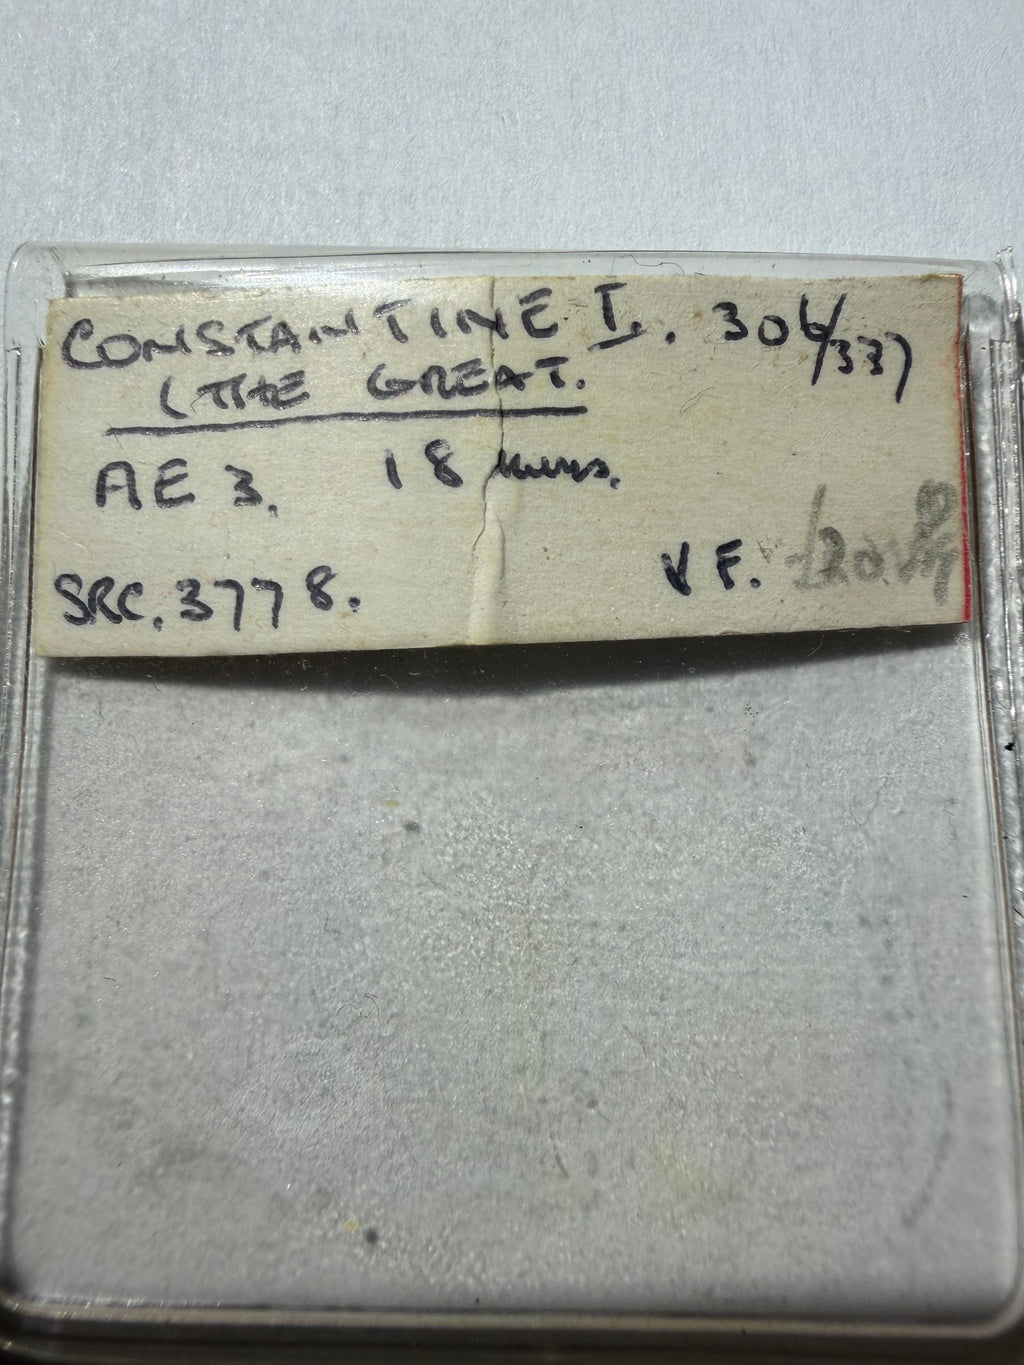 CONSTANTINE I. . 306/337
(THE GREAT.
AE 3. 18 mms.
SRC. 3778. VF.